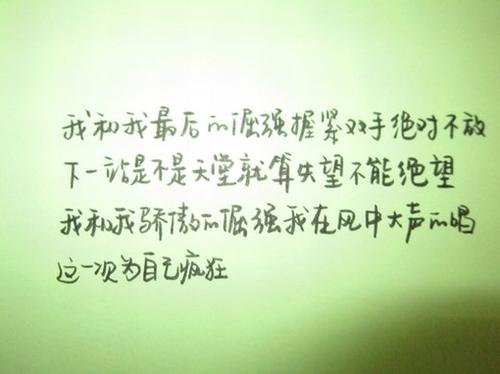 我和我最后的倔强握紧双手绝对不放
下一站是不是天堂就算失望不能绝望
我和我骄傲的倔强我在风中大声的唱
这一次为自己疯狂